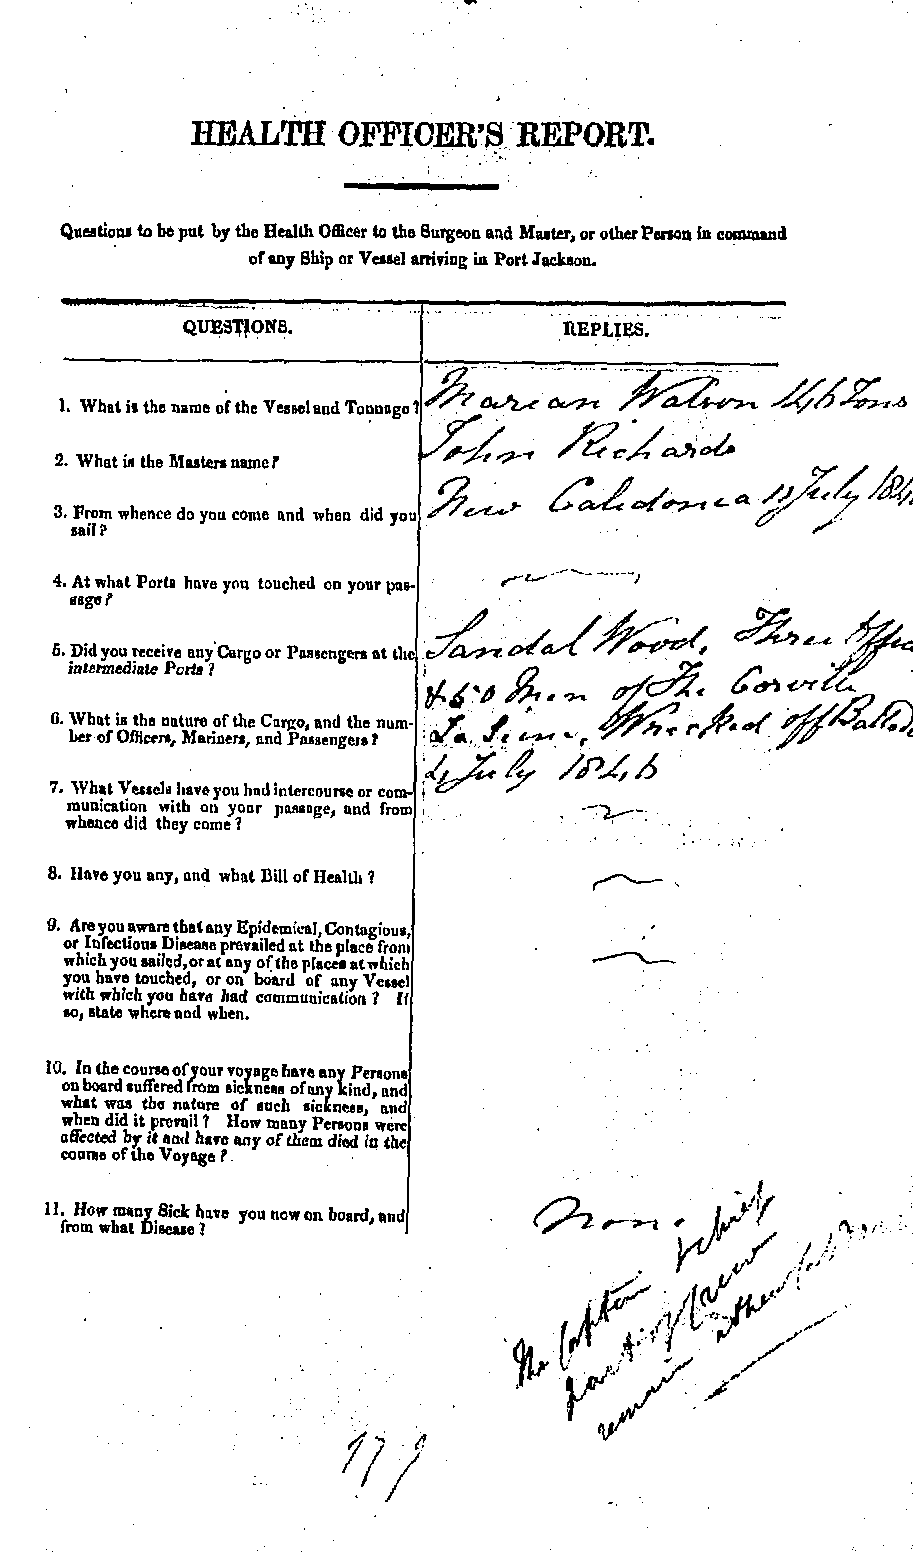 HEALTH OFFICER'S REPORT.
Questions to be put by the Health Officer to the Surgeon and Master, or other Person in command
of any Ship or Vessel arriving in Port Jackson.
QUESTIONS.
REPLIES.
1. What is the name of the Vessel and Tonnage?
Marian Watson 146 Tons
2. What is the Masters name?
John Richards
3. From whence do you come and when did you
sail?
New Caledonia 11 July 184
4. At what Ports have you touched on your pas-
sage?
5. Did you receive any Cargo or Passengers at the
intermediate Ports?
Sandal Wood, Three
& 50 Men of The
6. What is the nature of the Cargo, and the num-
ber of Officers, Mariners, and Passengers?
La Seine, Wrecked off
4 July 1846
7. What Vessels have you had intercourse or com-
munication with on your passage, and from
whence did they come?
8. Have you any, and what Bill of Health?
9. Are you aware that any Epidemical, Contagious,
or Infectious Disease prevailed at the place from
which you sailed, or at any of the places at which
you have touched, or on board of any Vessel
with which you have had communication? If
so, state where and when.
10. In the course of your voyage have any Persons
on board suffered from sickness of any kind, and
what was the nature of such sickness, and
when did it prevail? How many Persons were
affected by it and have any of them died in the
course of the Voyage?
11. How many Sick have you now on board, and
from what Disease?
None
The Captain & chief
part of Crew
remain
179